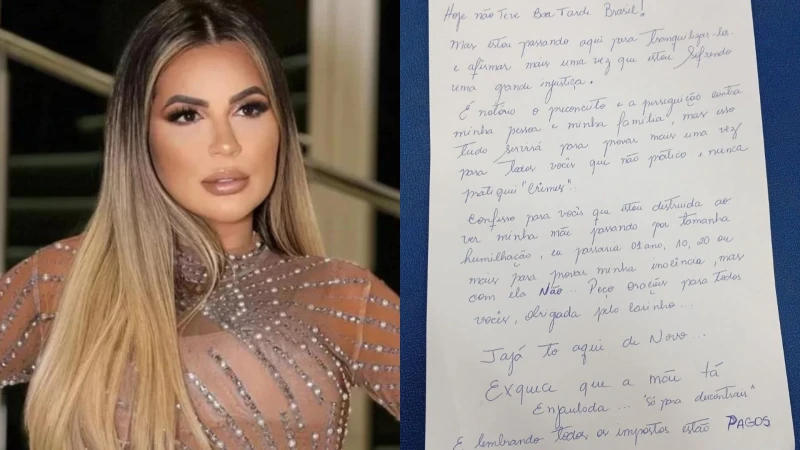 Hoje não Teve Boa Tarde Brasil!
Mas estou passando aqui para tranquilizar-los
e afirmar mais uma vez que estou sofrendo
uma grande injustiça.
É notório o preconceito e a perseguição contra
minha pessoa e minha família, mas isso
tudo servirá para provar mais uma vez
para todos vocês que não pratico, nunca
pratiquei "Crimes".
Confesso para vocês que estou destruida ao
ver minha mãe passando por tamanha
humilhação, eu passaria 01 ano, 10, 20 ou
mais para provar minha inocência, mas
com ela Não... Peço orações para todos
vocês, obrigada pelo carinho...
Jajá to aqui de Novo...
Exquea que a mãe tá
Enjaulada... "só para descontrair"
E lembrando todos os impostos estão PAGOS